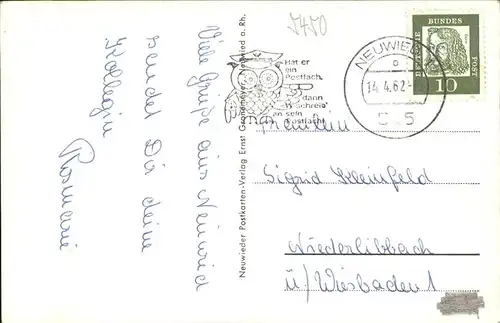 Viele Grüße aus Neuwied
sendet Dir deine
Kollegin
Rosmarie
Neuwieder Postkarten-Verlag Ernst Neuwied a. Rh.
5450
Hat er
ein
Postfach
dann
Schreib'
an sein
Postfach!
NEUWIED
14.4.62
DEUTSCHE BUNDESPOST
10
Fräulein
Sigrid Kleinfeld
Niederlibbach
ü/Wiesbaden 1